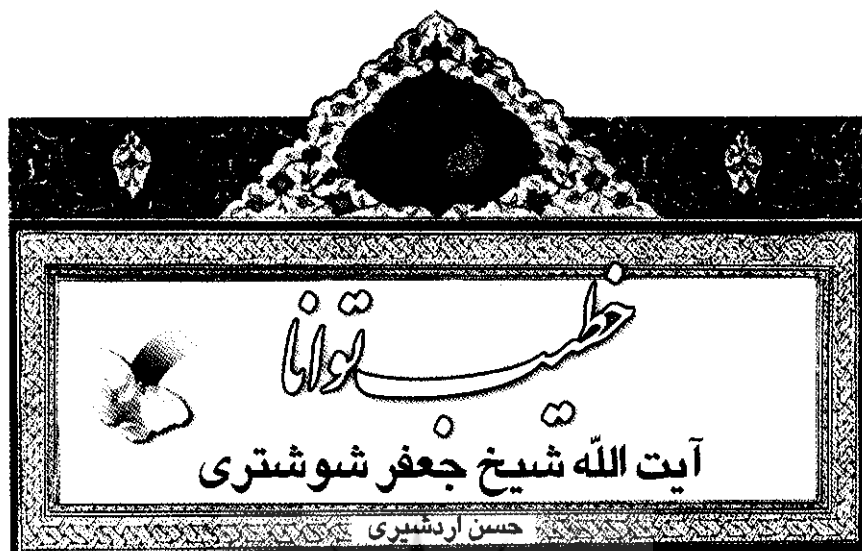 خطیب توانا
آیت الله شیخ جعفر شوشتری
حسن اردشیری